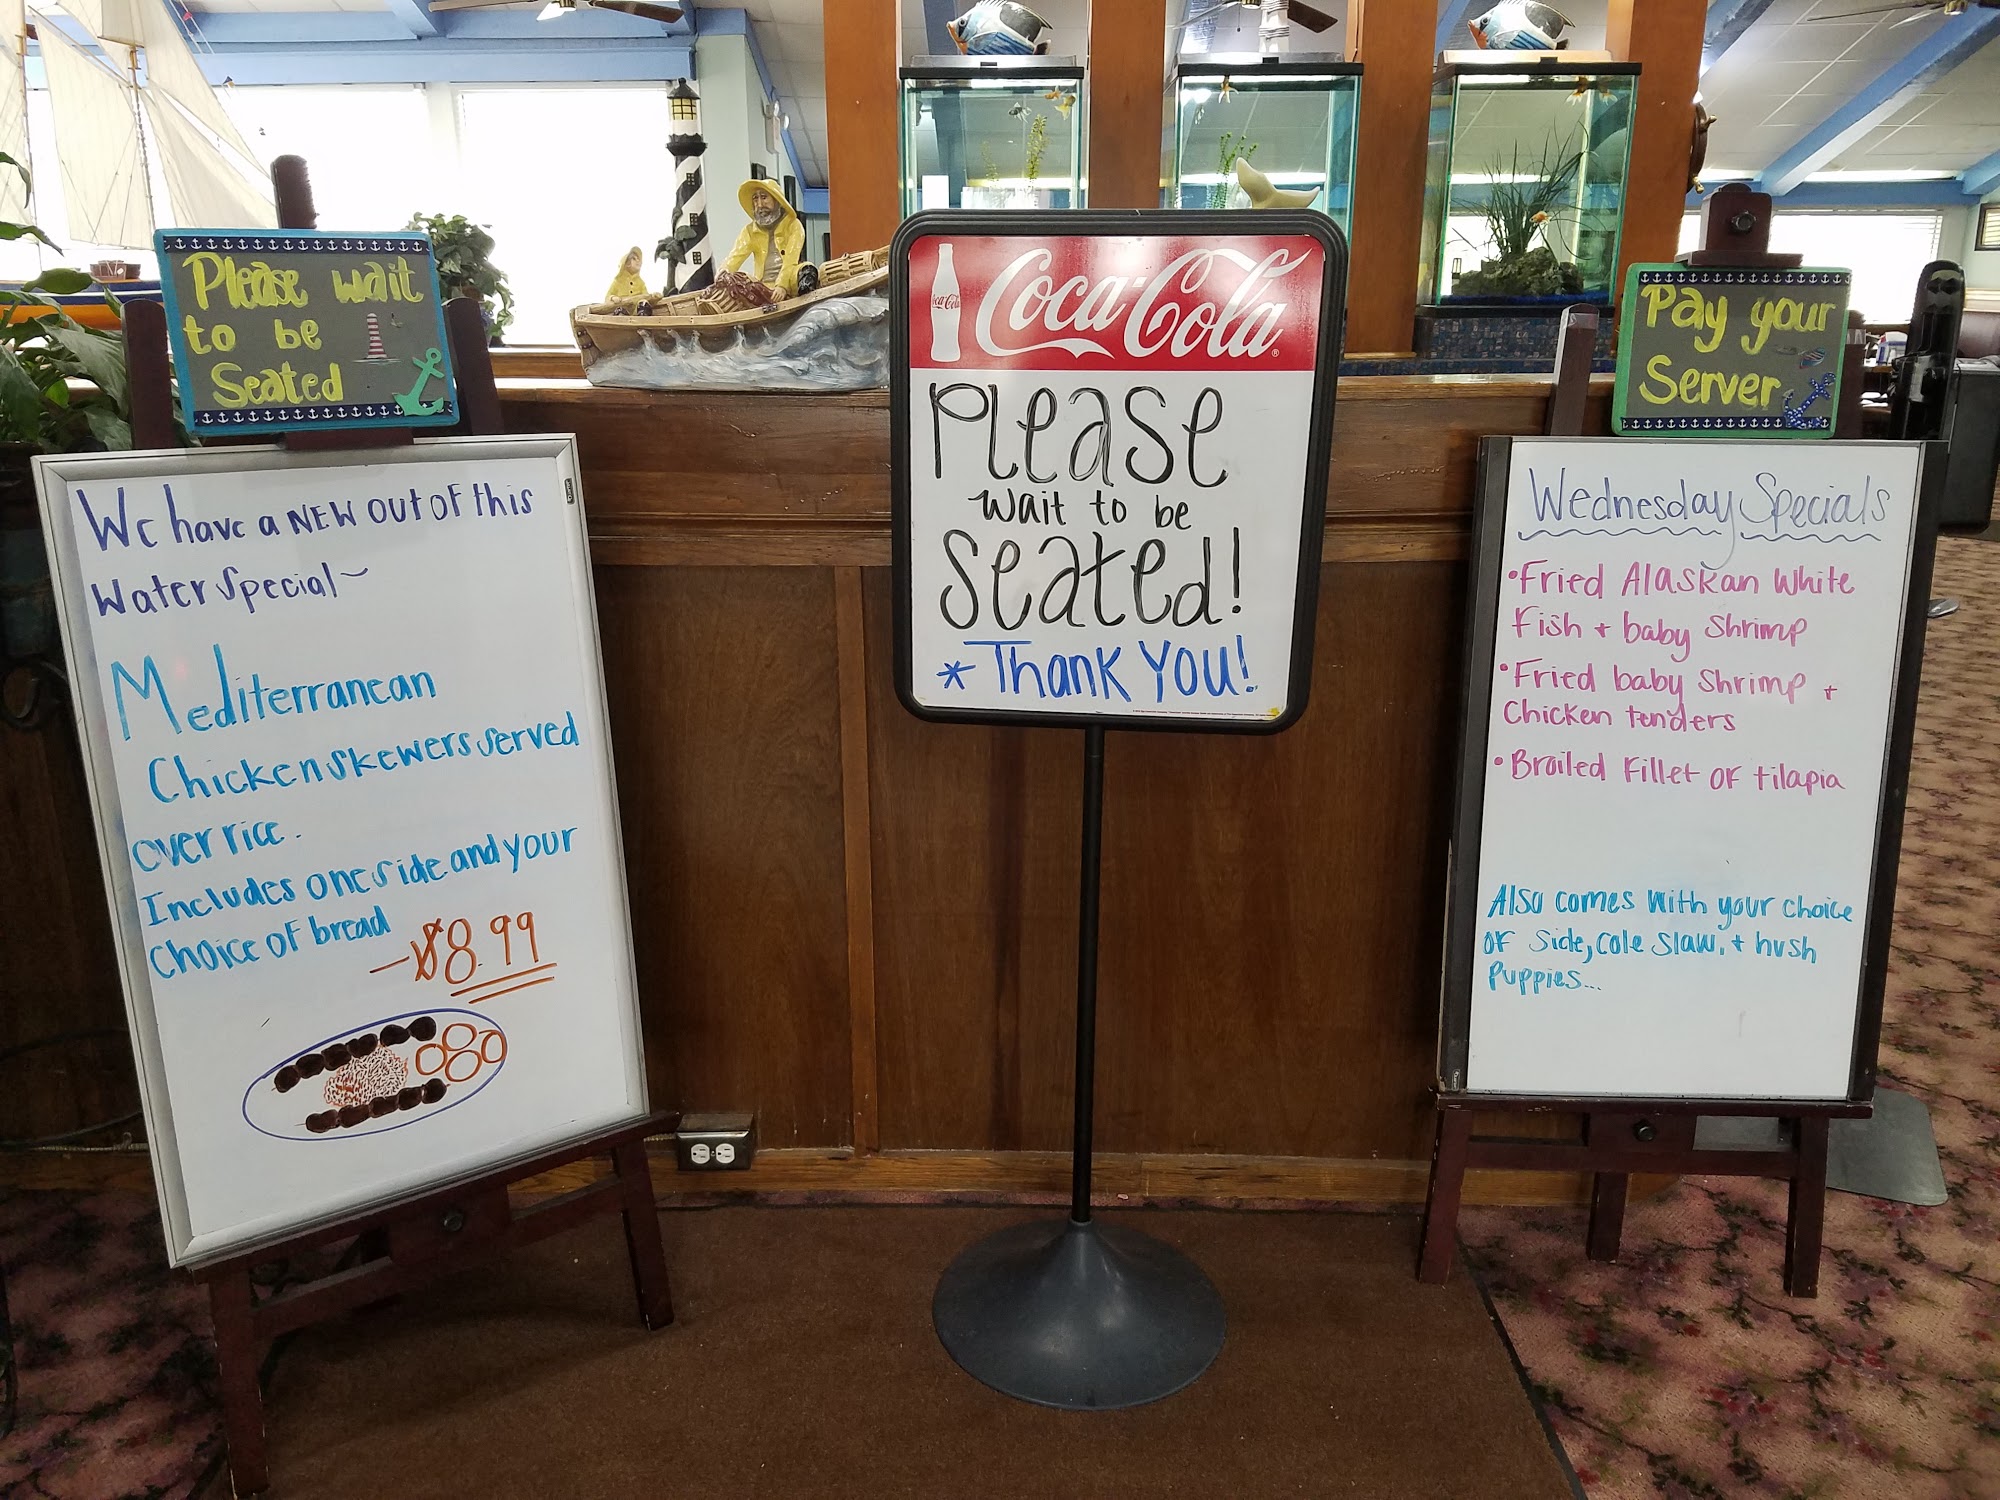 Please wait
to be
Seated
We have a NEW out of this
Water special~
Mediterranean
Chicken skewers served
over rice.
Includes one side and your
choice of bread
- $8.99
Coca-Cola
Coca-Cola®
Please
wait to be
Seated!
* Thank You!
Pay your
Server
Wednesday Specials
• Fried Alaskan White
Fish + baby Shrimp
• Fried baby Shrimp +
Chicken tenders
• Broiled Fillet of tilapia
Also comes with your choice
of side, cole slaw, + hush
puppies...